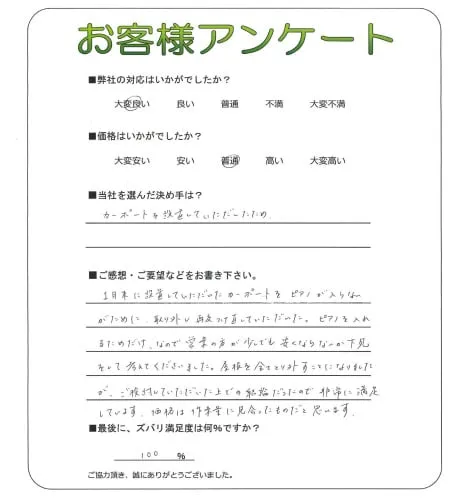 お客様アンケート
■弊社の対応はいかがでしたか？
大変良い 良い 普通 不満 大変不満
■価格はいかがでしたか？
大変安い 安い 普通 高い 大変高い
■当社を選んだ決め手は？
カーポートを設置していただいたため
■ご感想・ご要望などをお書き下さい。
1月末に設置していただいたカーポートを ピアノが入らない
がために、取り外し 再度付け直していただいた。ピアノを入れ
るためだけ、なので 営業の方が少しでも安くならないか下見
をして 考えてくださいました。屋根を全てとり外すことになりました
が、ご検討していただいた上での結論だったので 非常に満足
しています。価格は作業量に見合ったものだと思います。
■最後に、ズバリ満足度は何％ですか？
100 ％
ご協力頂き、誠にありがとうございました。